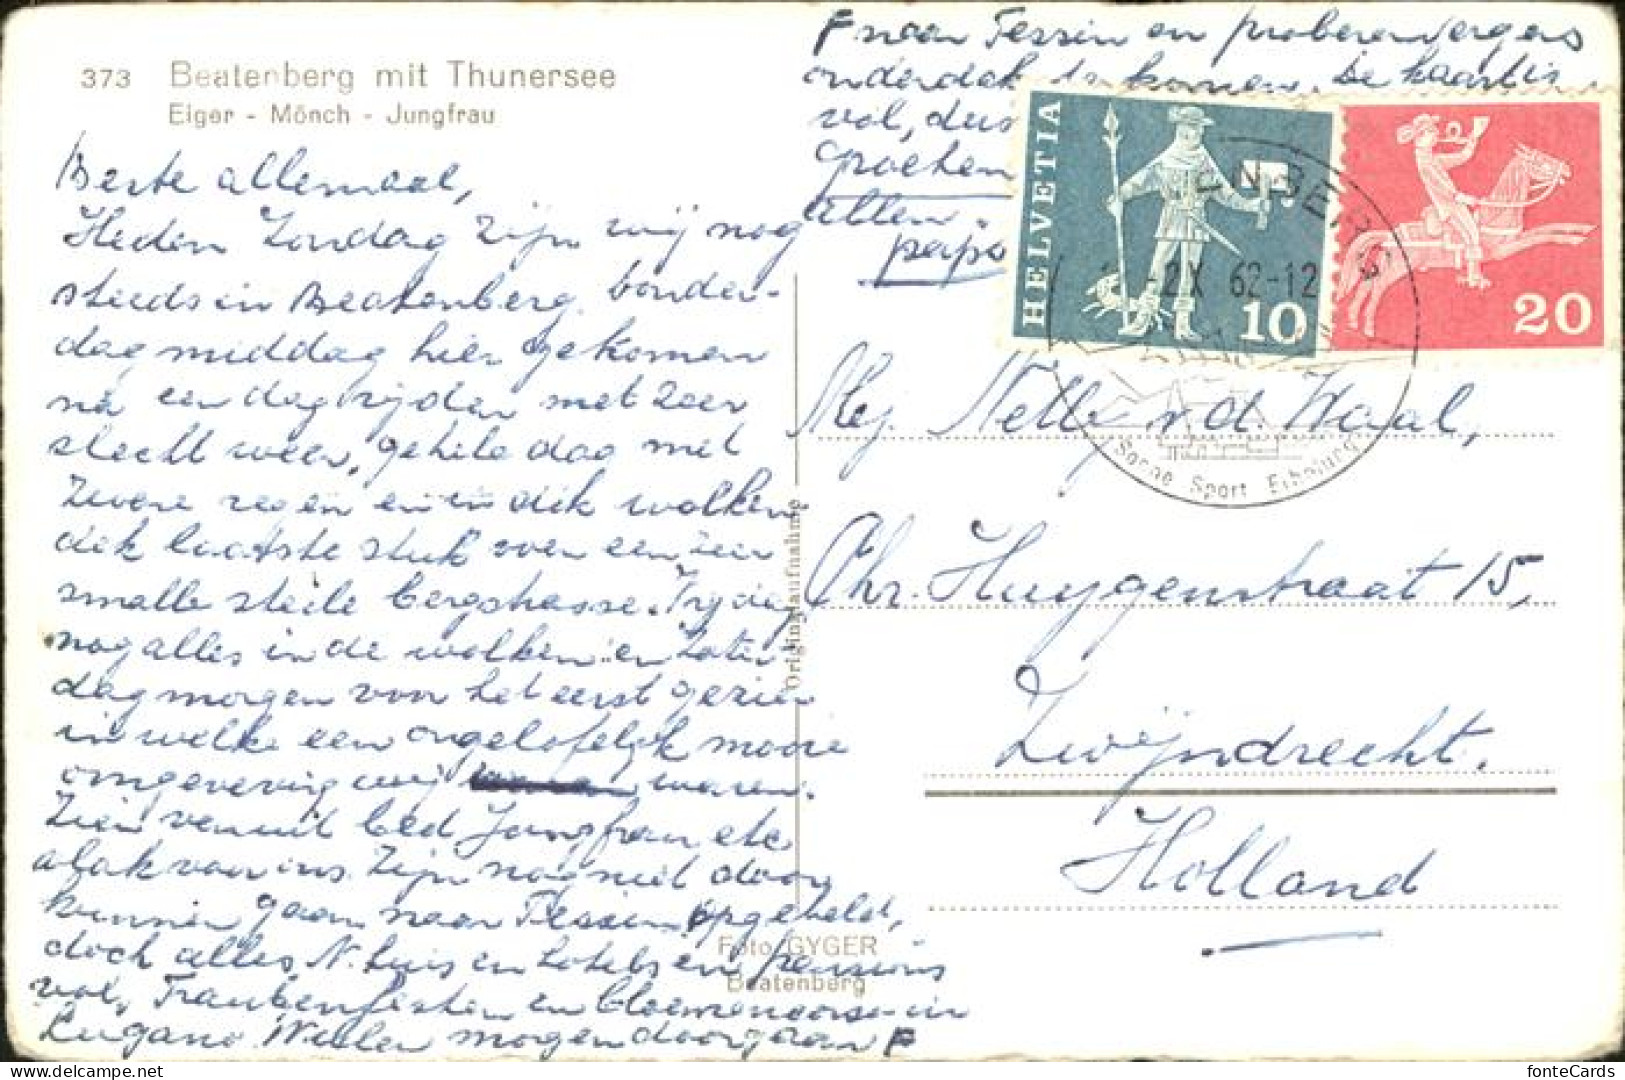 373 Beatenberg mit Thunersee
Eiger - Mönch - Jungfrau
Beste allemaal,
Heden Zondag zijn wij nog
steeds in Beatenberg. Donder-
dag middag hier gekomen
na een dag rijden met zeer
slecht weer, gehele dag met
zware regen en in dik wolken
dek laatste stuk over een zeer
smalle steile bergstrasse. Vrijdag
nog alles in de wolken en Zater-
dag morgen voor het eerst gezien
in welke een ongelofelijk mooie
omgeving wij waren.
Zien vanuit bed Jungfrau etc
vlak voor ons. Zijn nog niet door
kunnen gaan naar Tessin, opgebeld,
doch alles, N. huis en hotels en pensions
vol, Traubenfesten en bloemencorso in
Lugano. Willen morgen doorgaan F
F naar Tessin en proberen ergens
onderdak te komen. De kaart is
vol, dus
groeten
allen.
papa
HELVETIA
10
20
-2.X 62-12
Sonne Sport Erholung
Mej. Nelly v.d. Waal,
Chr. Huygenstraat 15,
Zwijndrecht.
Holland
Originalaufnahme
Foto GYGER
Beatenberg
fonteCards